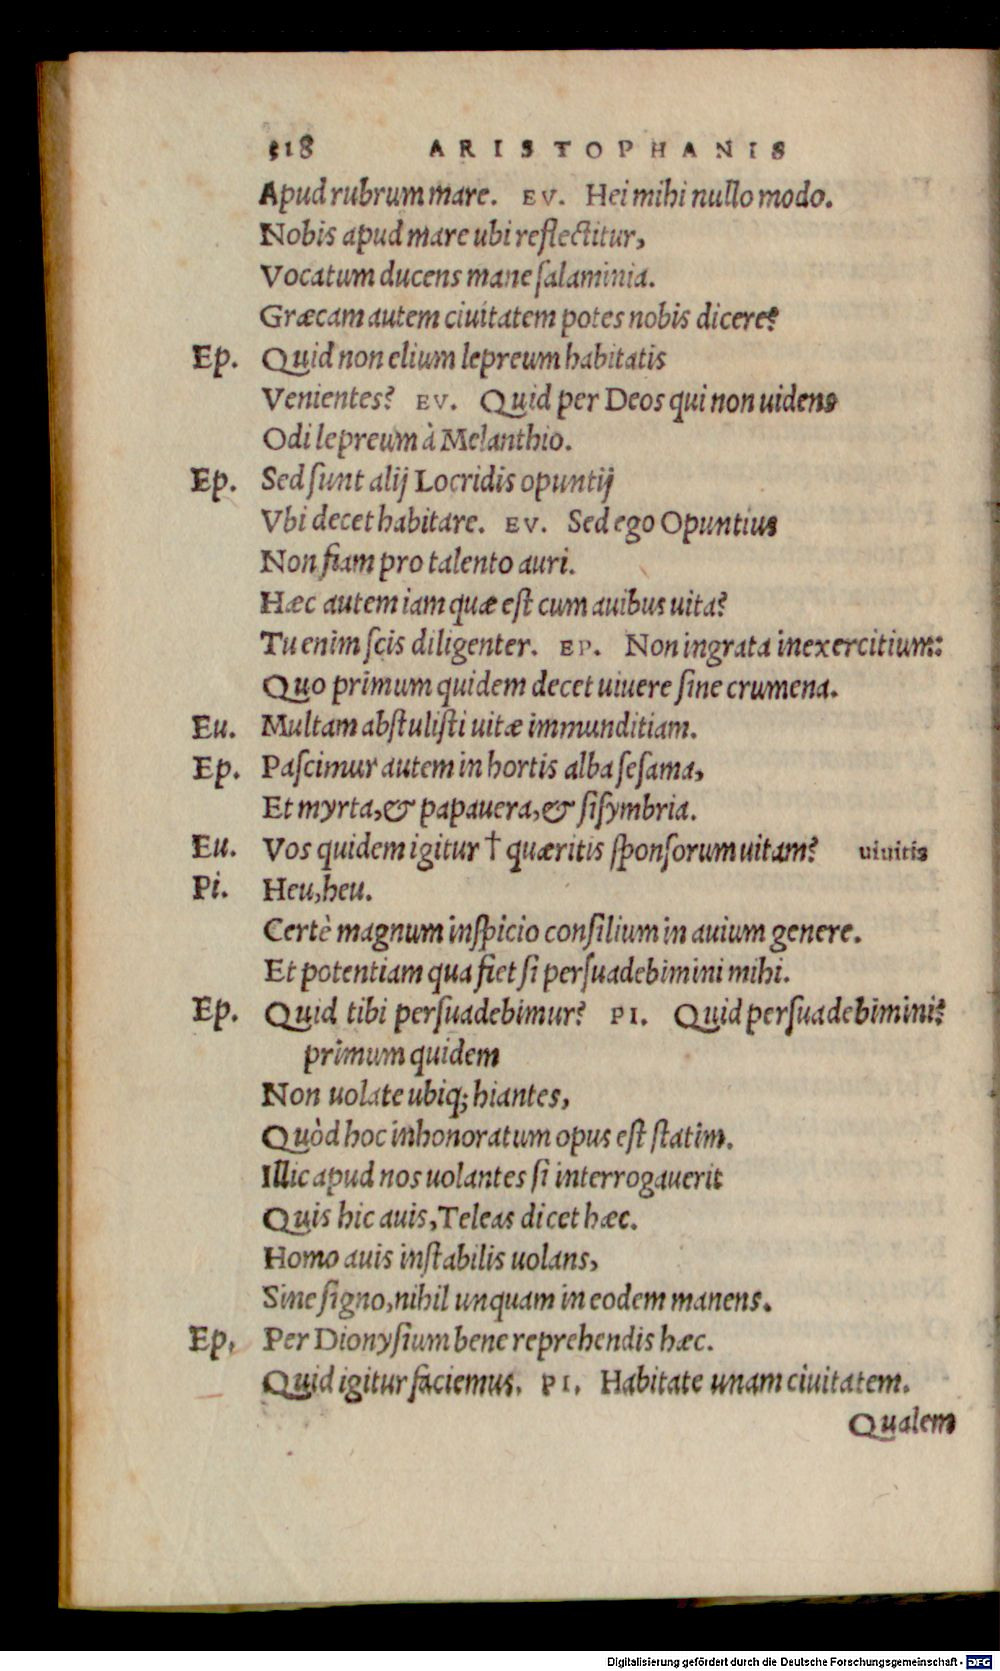 518 ARISTOPHANIS
Apud rubrum mare. EV. Hei mihi nullo modo.
Nobis apud mare ubi reflectitur,
Vocatum ducens mane salaminia.
Græcam autem ciuitatem potes nobis dicere?
Ep. Quid non elium lepreum habitatis
Venientes? EV. Quid per Deos qui non uidens
Odi lepreum à Melanthio.
Ep. Sed sunt alij Locridis opuntij
Vbi decet habitare. EV. Sed ego Opuntius
Non fiam pro talento auri.
Hæc autem iam quæ est cum auibus uita?
Tu enim scis diligenter. EP. Non ingrata inexercitium:
Quo primum quidem decet uiuere sine crumena.
Eu. Multam abstulisti uitæ immunditiam.
Ep. Pascimur autem in hortis alba sesama,
Et myrta, & papauera, & sisymbria.
Eu. Vos quidem igitur † quæritis sponsorum uitam? uiuitis
Pi. Heu, heu.
Certè magnum inspicio consilium in auium genere.
Et potentiam qua fiet si persuadebimini mihi.
Ep. Quid tibi persuadebimur? PI. Quid persuadebimini?
primum quidem
Non uolate ubiq; hiantes,
Quòd hoc inhonoratum opus est statim.
Illic apud nos uolantes si interrogauerit
Quis hic auis, Teleas dicet hæc.
Homo auis instabilis uolans,
Sine signo, nihil unquam in eodem manens.
Ep. Per Dionysium bene reprehendis hæc.
Quid igitur faciemus. PI. Habitate unam ciuitatem.
Qualem
Digitalisierung gefördert durch die Deutsche Forschungsgemeinschaft - DFG